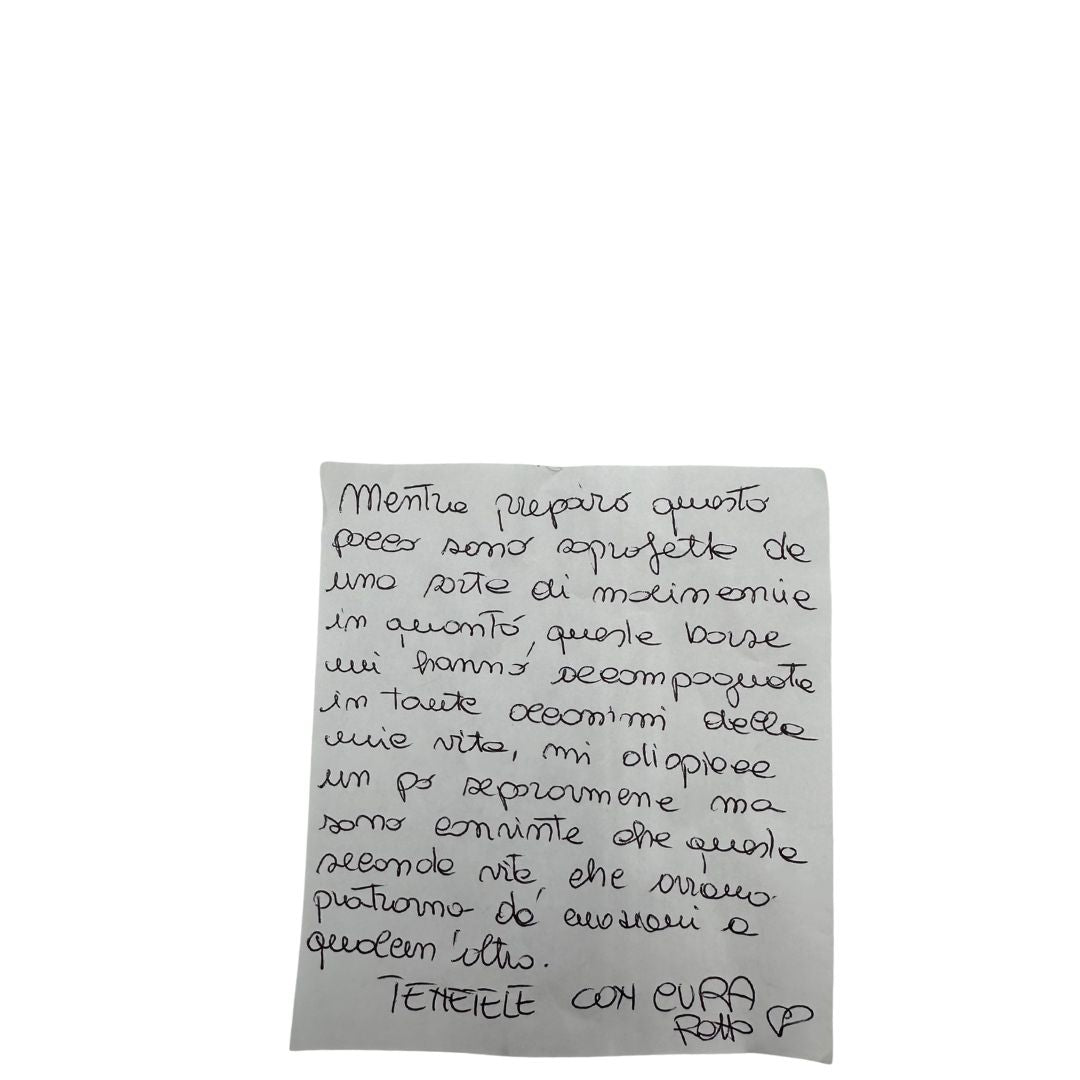 Mentre preparo questo
pacco sono sopraffatta da
una sorta di malinconia
in quanto, queste borse
mi hanno accompagnata
in tante occasioni della
mia vita, mi dispiace
un pò separarmene ma
sono convinta che questa
seconda vita, che avranno
potranno dà emozioni a
qualcun'altro.
TENETELE CON CURA